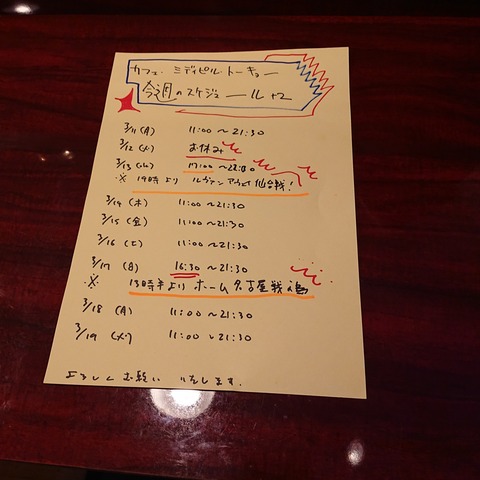 カフェ・ミディピル・トーキョー
今週のスケジュール +2
3/11(月) 11:00~21:30
3/12(火) お休み
3/13(水) 17:00~23:00
※ 19時より ルヴァンアウェイ仙台戦!
3/14(木) 11:00~21:30
3/15(金) 11:00~21:30
3/16(土) 11:00~21:30
3/17(日) 16:30~21:30
※ 13時半よりホーム名古屋戦
3/18(月) 11:00~21:30
3/19(火) 11:00~21:30
よろしくお願いいたします.